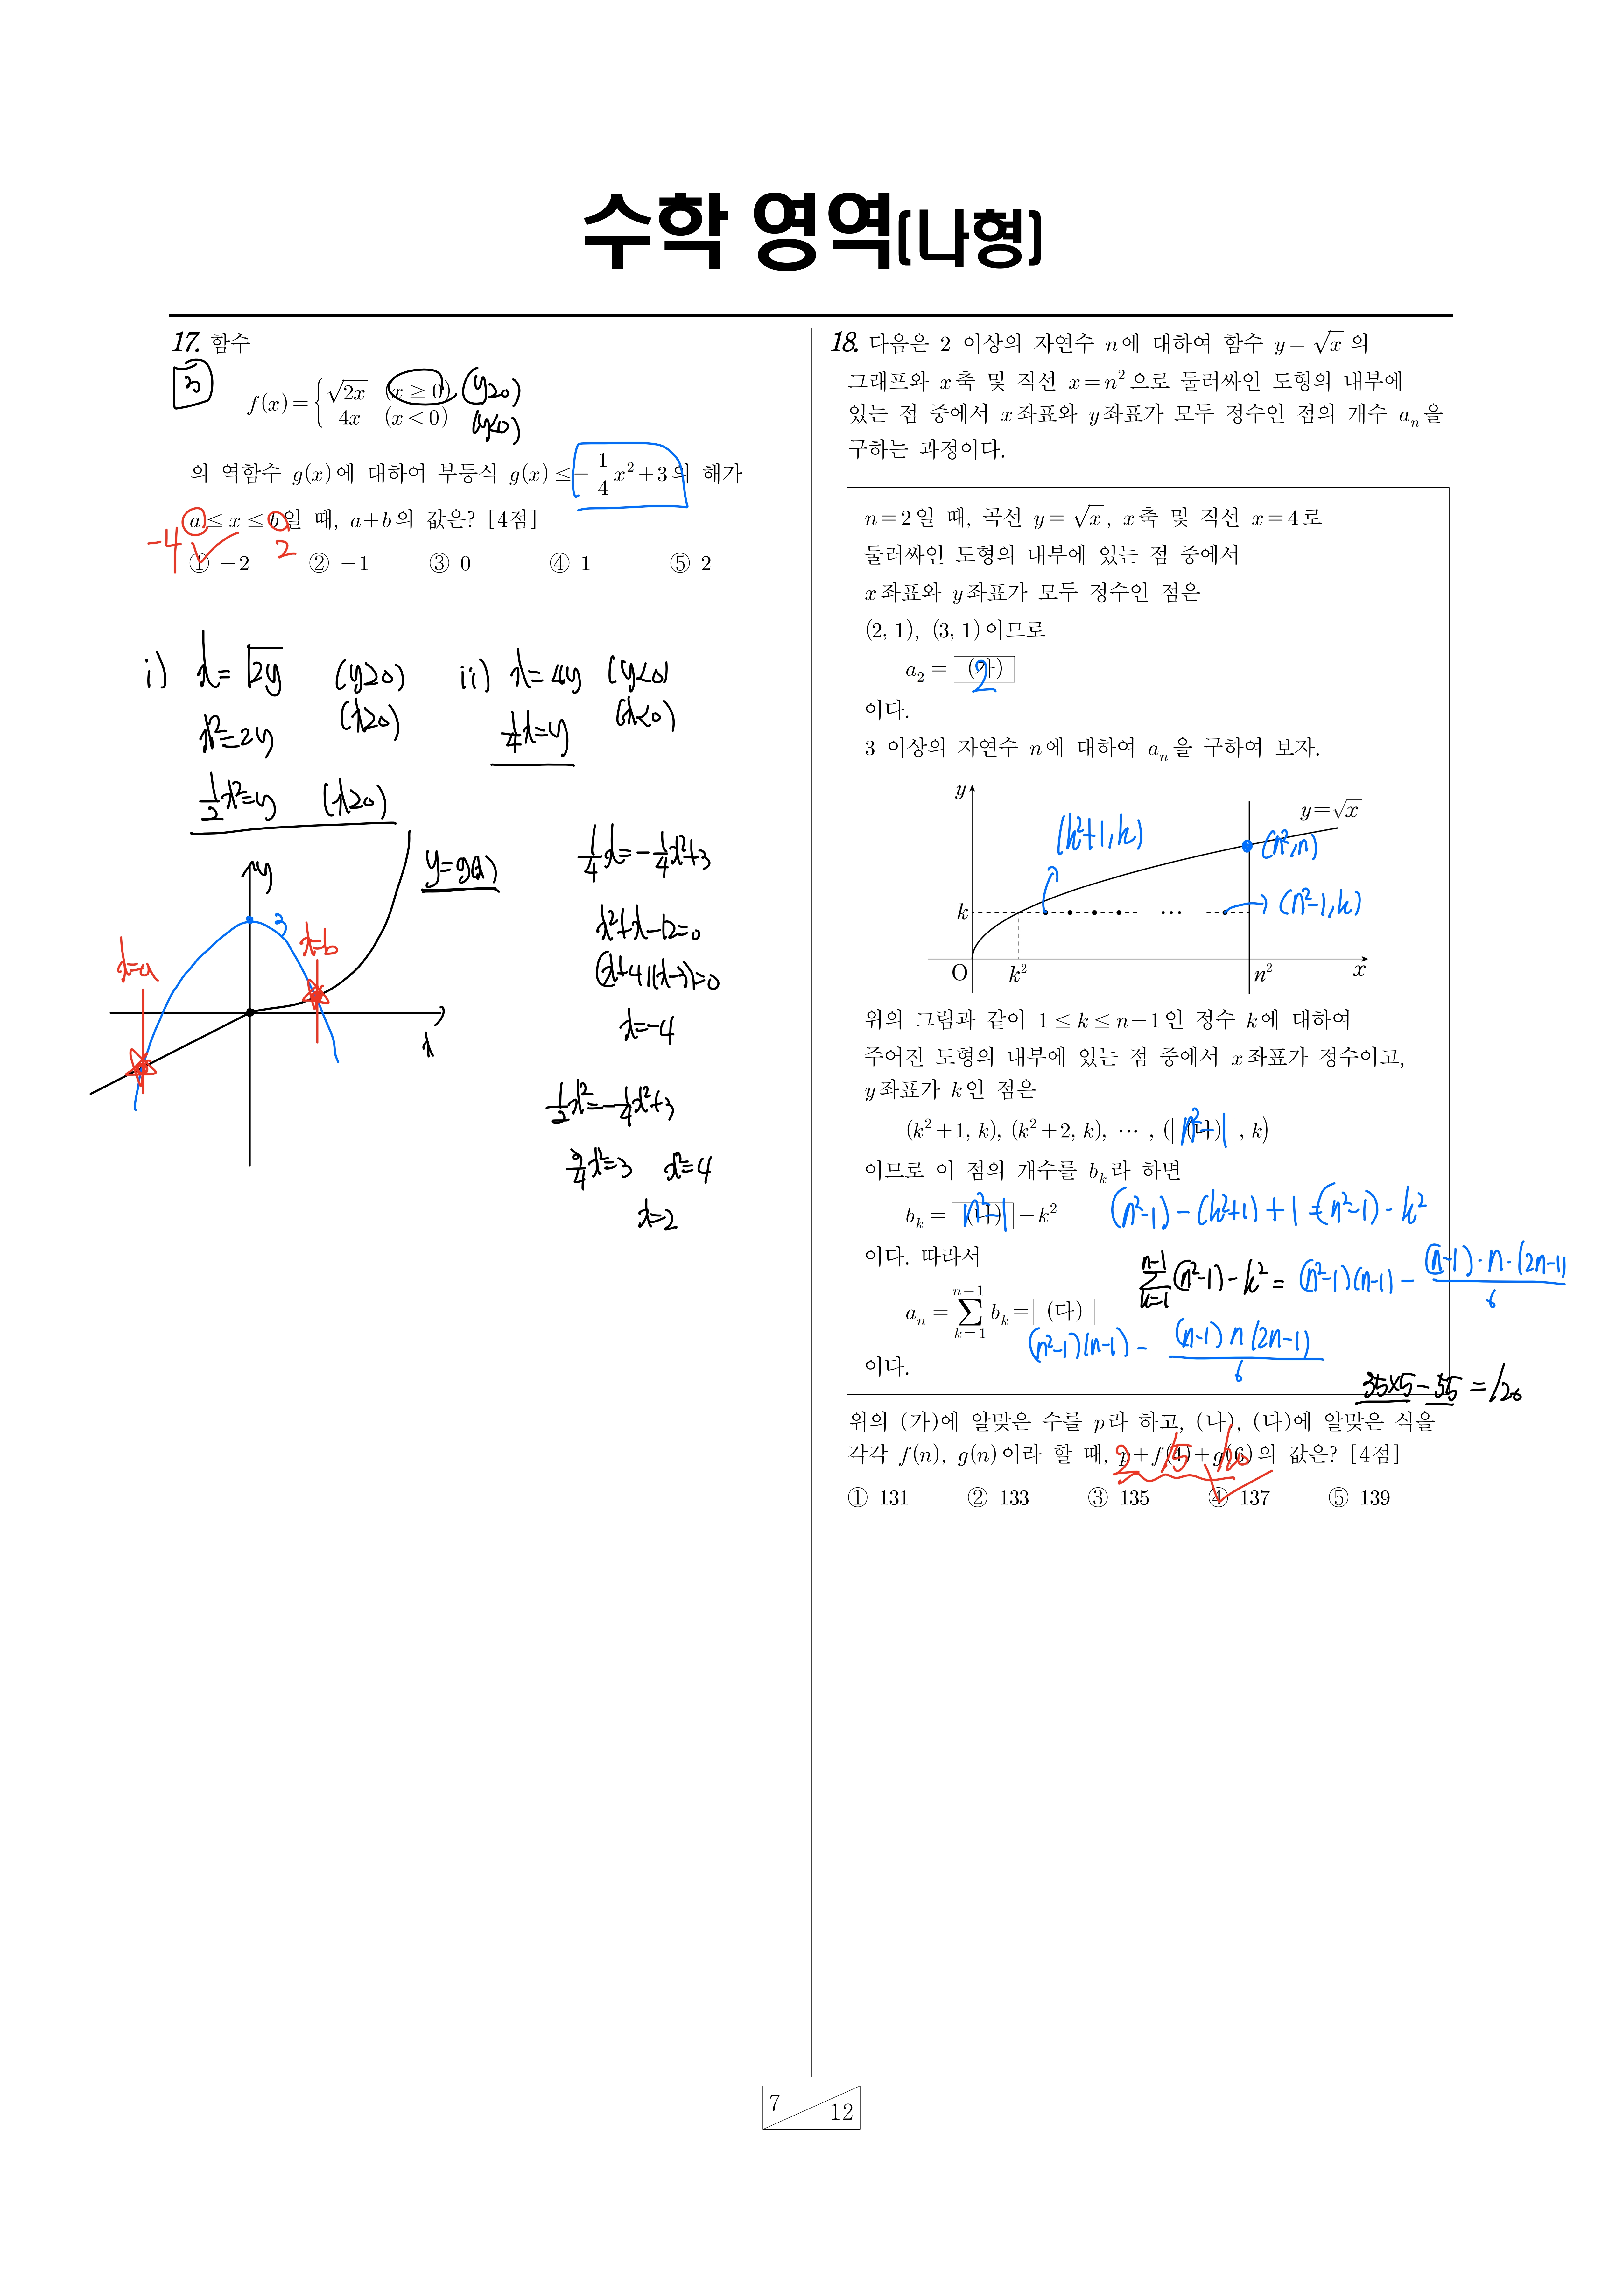 수학 영역(나형)
17. 함수
중
f(x) = { √2x (x ≥ 0) (y≥0)
4x (x < 0) (y<0)
의 역함수 g(x)에 대하여 부등식 g(x) ≤ -1/4 x² + 3의 해가
a ≤ x ≤ b일 때, a+b의 값은? [4점]
-4 2
① -2 ② -1 ③ 0 ④ 1 ⑤ 2
i) x = √2y (y≥0) ii) x = 4y (y<0)
x² = 2y (x≥0) 1/4 x = y (x<0)
1/2 x² = y (x≥0)
y = g(x)
y
3
x=a
x=b
x
1/4 x = -1/4 x² + 3
x² + x - 12 = 0
(x+4)(x-3) = 0
x = -4
1/2 x² = -1/4 x² + 3
3/4 x² = 3 x² = 4
x = 2
18. 다음은 2 이상의 자연수 n에 대하여 함수 y = √x 의
그래프와 x축 및 직선 x = n²으로 둘러싸인 도형의 내부에
있는 점 중에서 x좌표와 y좌표가 모두 정수인 점의 개수 aₙ을
구하는 과정이다.
n = 2일 때, 곡선 y = √x, x축 및 직선 x = 4로
둘러싸인 도형의 내부에 있는 점 중에서
x좌표와 y좌표가 모두 정수인 점은
(2, 1), (3, 1)이므로
a₂ = (가) 2
이다.
3 이상의 자연수 n에 대하여 aₙ을 구하여 보자.
y
y = √x
(k²+1, k)
(n², n)
k
⋯
(n²-1, k)
O k² n² x
위의 그림과 같이 1 ≤ k ≤ n-1인 정수 k에 대하여
주어진 도형의 내부에 있는 점 중에서 x좌표가 정수이고,
y좌표가 k인 점은
(k²+1, k), (k²+2, k), ⋯, ( (나) n²-1 , k)
이므로 이 점의 개수를 bₖ라 하면
bₖ = (나) n²-1 - k² (n²-1) - (k²+1) + 1 = (n²-1) - k²
이다. 따라서
∑_{k=1}^{n-1} (n²-1) - k² = (n²-1)(n-1) - (n-1)·n·(2n-1)/6
aₙ = ∑_{k=1}^{n-1} bₖ = (다)
(n²-1)(n-1) - (n-1)n(2n-1)/6
이다.
35×5 - 55 = 120
위의 (가)에 알맞은 수를 p라 하고, (나), (다)에 알맞은 식을
각각 f(n), g(n)이라 할 때, p + f(4) + g(6)의 값은? [4점]
2 15 120
① 131 ② 133 ③ 135 ④ 137 ⑤ 139
7
12